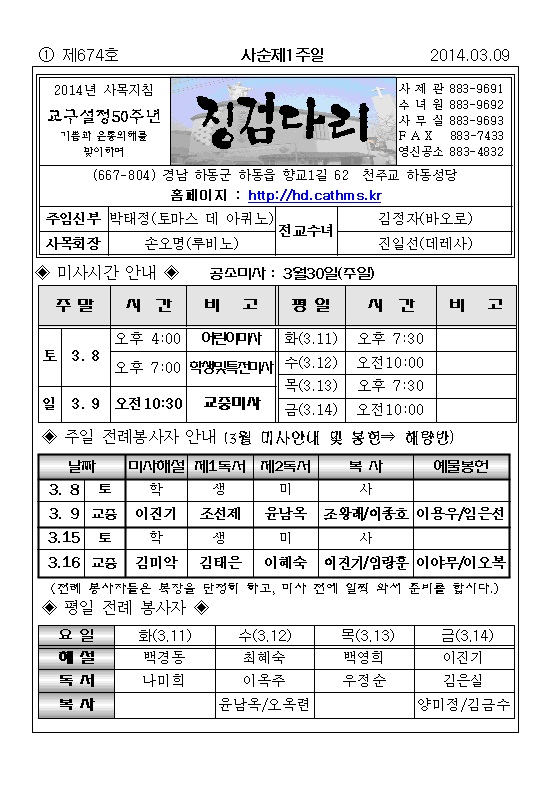 ① 제674호 사순제1주일 2014.03.09
2014년 사목지침
교구설정50주년
기쁨과 은총의해를
맞이하며
징검다리
사 제 관 883-9691
수 녀 원 883-9692
사 무 실 883-9693
F A X 883-7433
영신공소 883-4832
(667-804) 경남 하동군 하동읍 향교1길 62 천주교 하동성당
홈페이지 : http://hd.cathms.kr
주임신부 박태정(토마스 데 아퀴노) 전교수녀 김정자(바오로)
사목회장 손오명(루비노) 진일선(데레사)
◈ 미사시간 안내 ◈ 공소미사 : 3월30일(주일)
주 말 시 간 비 고 평 일 시 간 비 고
토 3. 8 오후 4:00 어린이미사 화(3.11) 오후 7:30
오후 7:00 학생및특전미사 수(3.12) 오전10:00
목(3.13) 오후 7:30
일 3. 9 오전10:30 교중미사 금(3.14) 오전10:00
◈ 주일 전례봉사자 안내 (3월 미사안내 및 봉헌⇒ 해량반)
날짜 미사해설 제1독서 제2독서 복 사 예물봉헌
3. 8 토 학 생 미 사
3. 9 교중 이진기 조선제 윤남옥 조왕래/이종호 이용우/임은선
3.15 토 학 생 미 사
3.16 교중 김미악 김태은 이혜숙 이진기/임랑훈 이야무/이오복
(전례 봉사자들은 복장을 단정히 하고, 미사 전에 일찍 와서 준비를 합시다.)
◈ 평일 전례 봉사자 ◈
요 일 화(3.11) 수(3.12) 목(3.13) 금(3.14)
해 설 백경동 최혜숙 백영희 이진기
독 서 나미희 이옥주 우정순 김은실
복 사 윤남옥/오옥련 양미정/김금수